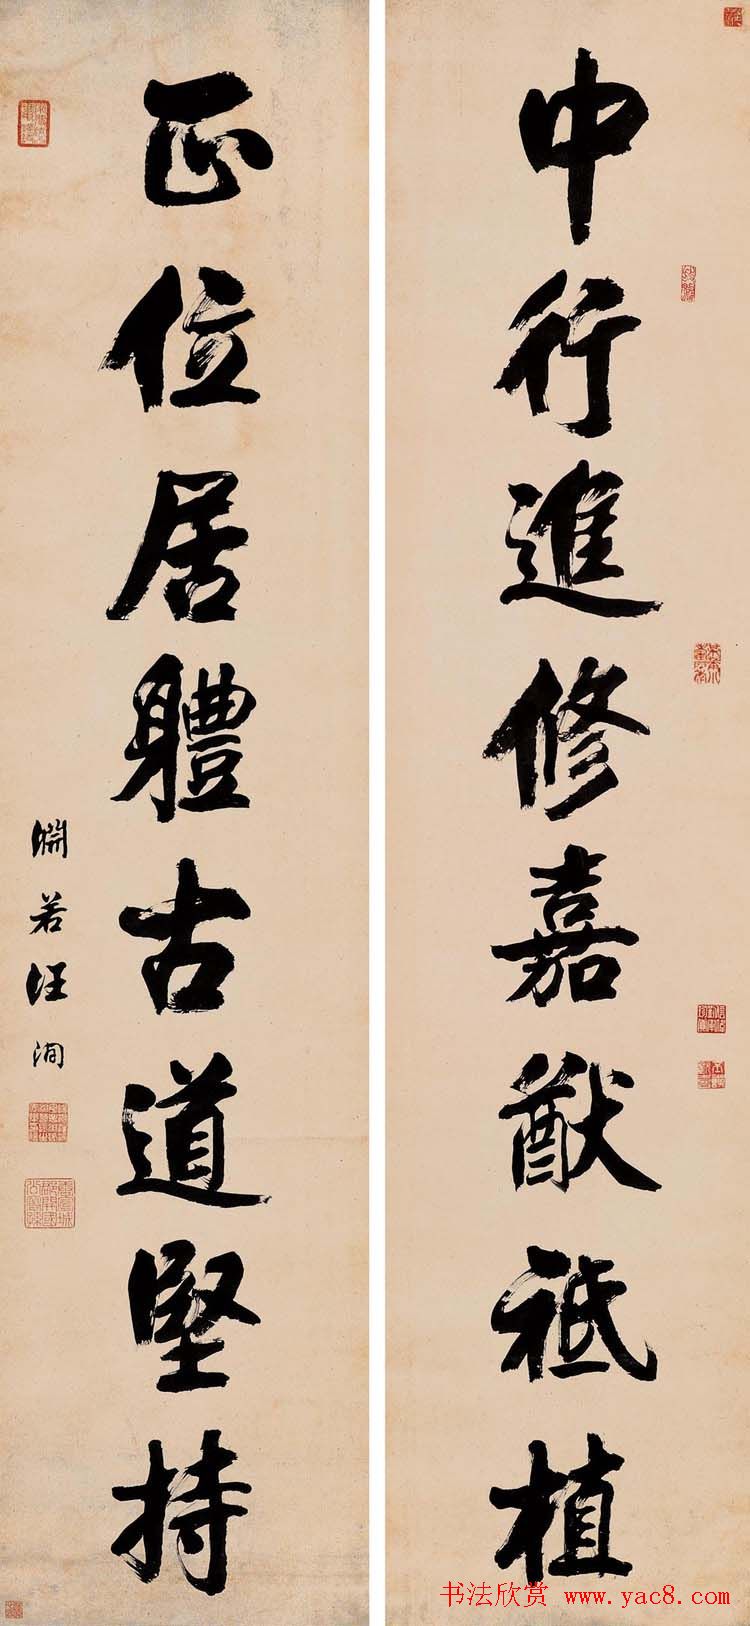 中行進修嘉猷祗植
正位居體古道堅持
淵若汪洵
书法欣赏 www.yac8.com